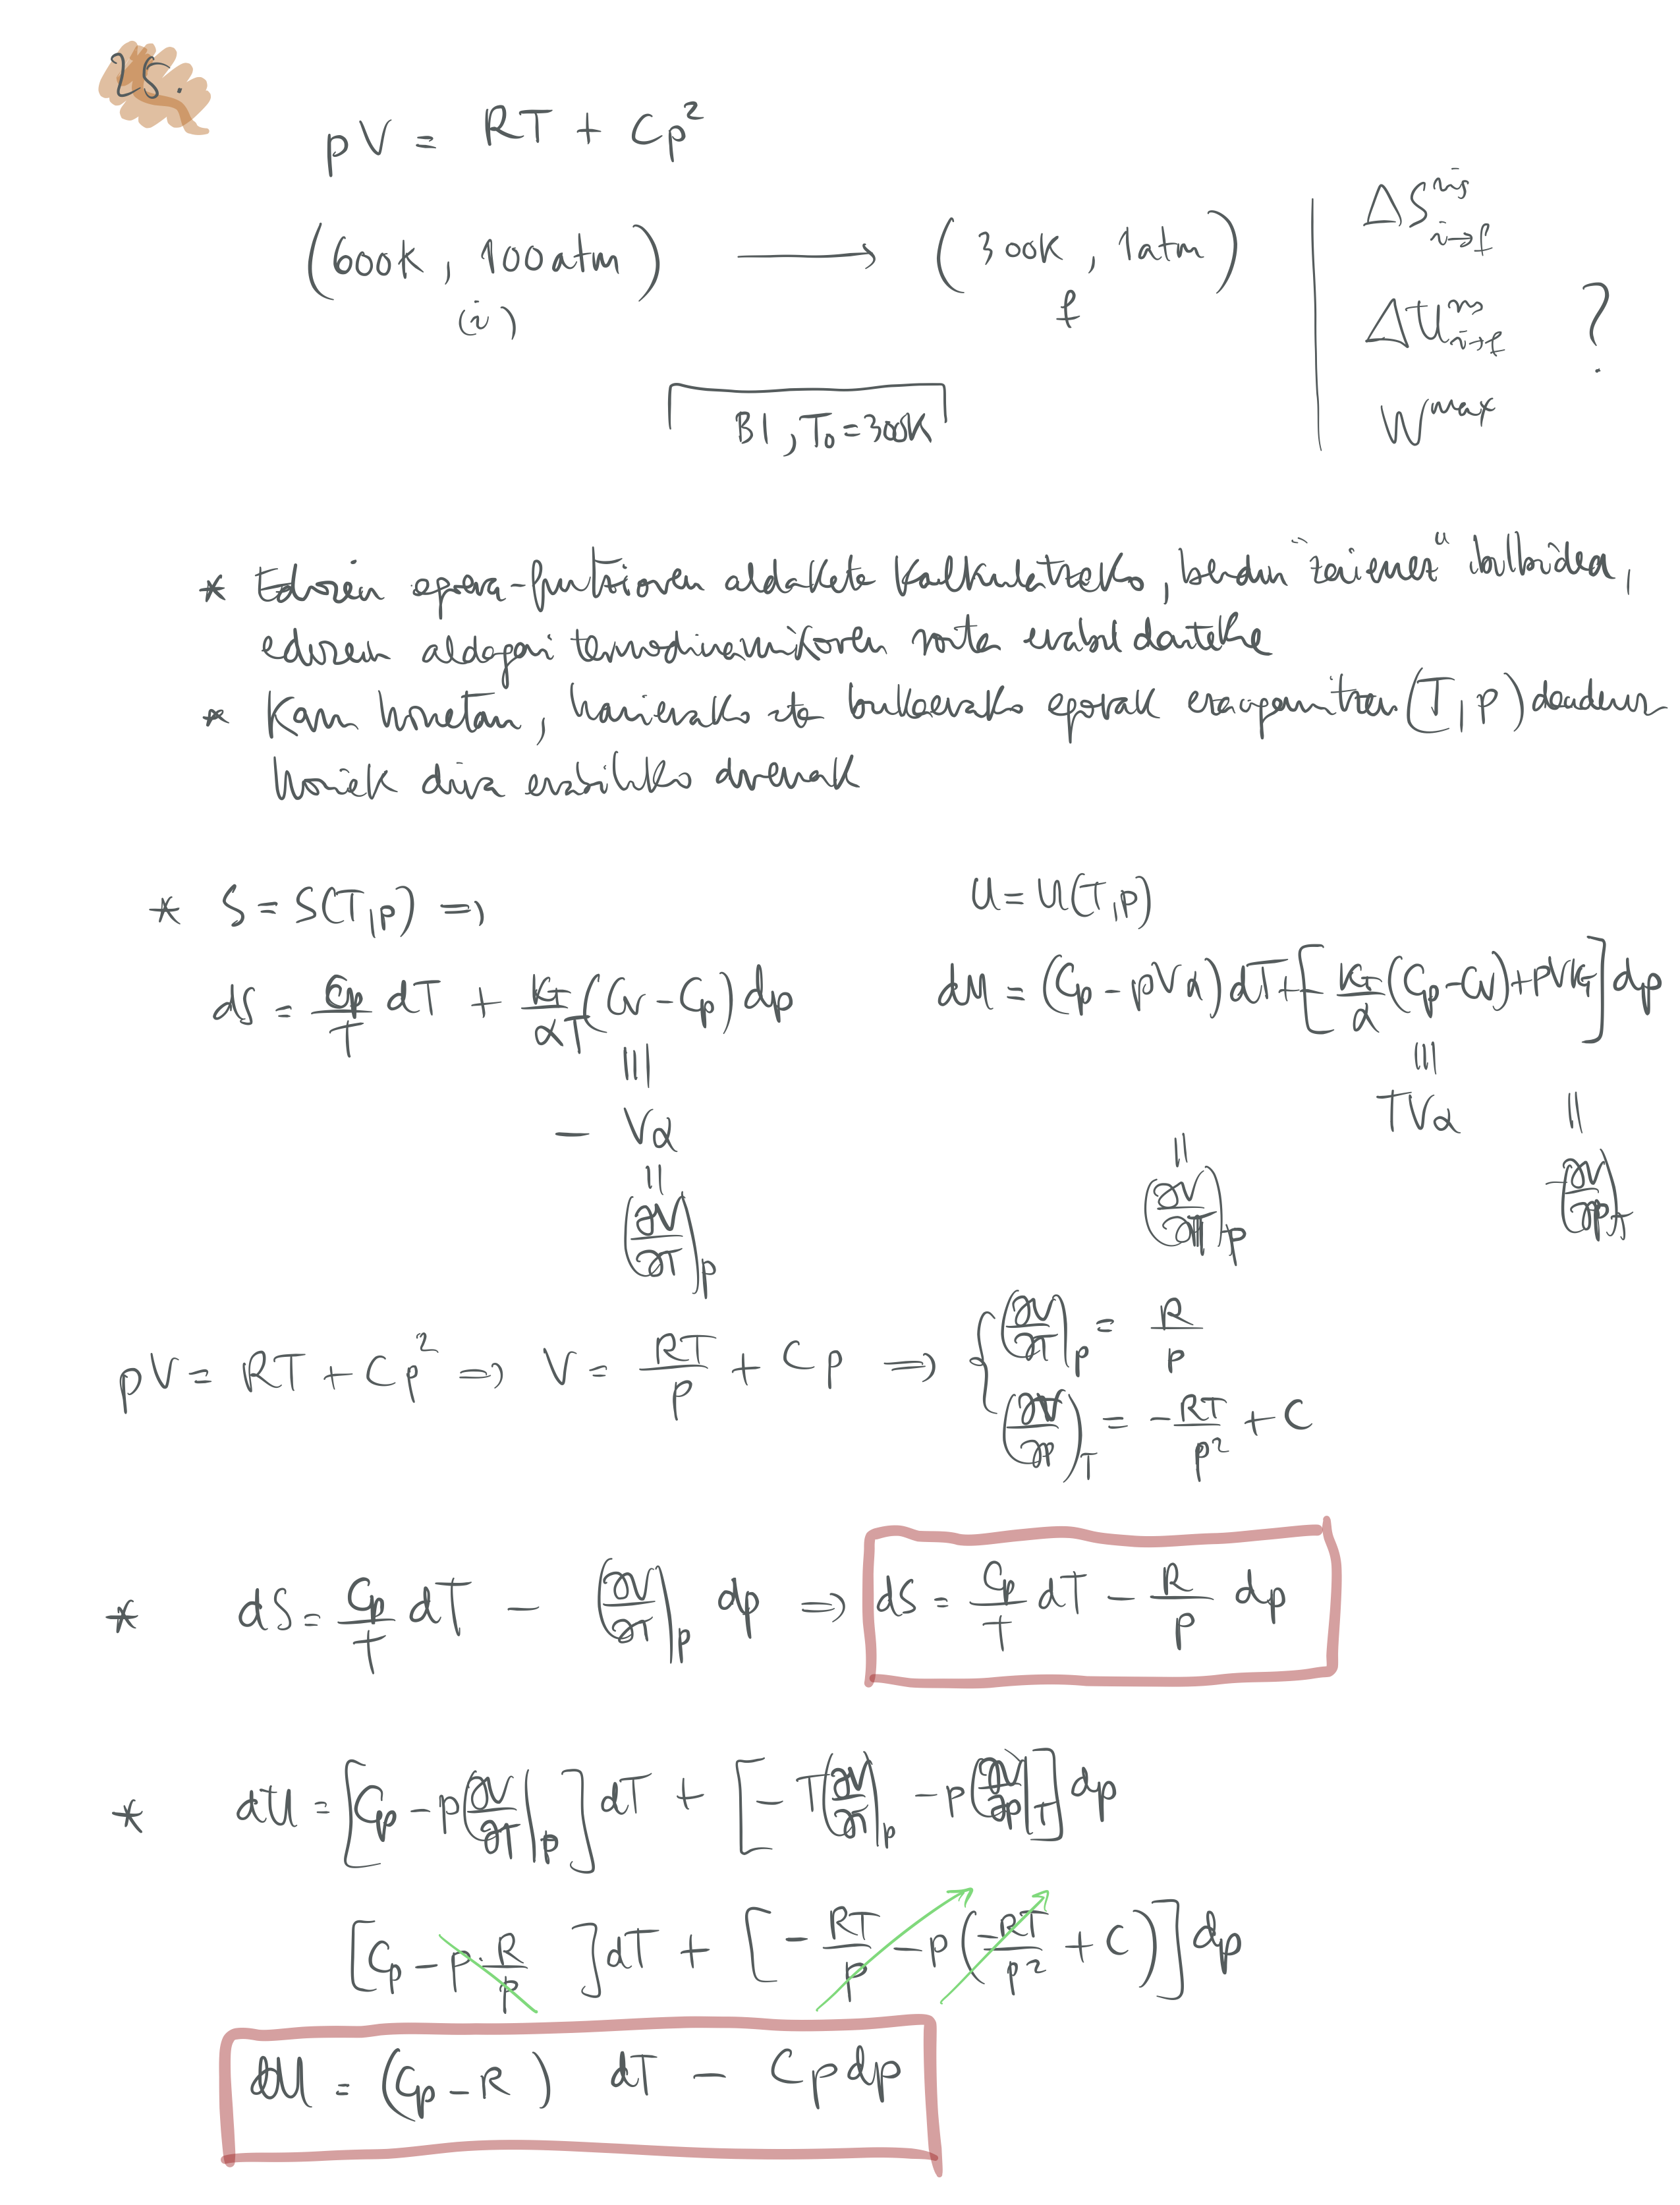 25.
pV = RT + Cp²
(600K, 100atm) ⟶ (300K, 1atm)
(i) f
BI, T₀=300K
ΔS^{sis}_{i→f}
ΔU^{sis}_{i→f} ?
W^{max}
* Edozein egoera-funtzioren aldaketa kalkulatzeko, berdin "zeinen" bilbidea,
edozein aldagai termodinamikoren sorta erabil daiteke
* Kasu honetan, hasierako eta bukaerako egoerak ezagutzen (T, p) ditugu
horiek dira erabiliko direnak
* S = S(T,p) ⇒
U = U(T,p)
dS = Cp/T dT + κT/αT (Cv − Cp) dp
dU = (Cp − pVα) dT + [− κT/α (Cp − Cv) + pVκT] dp
≡ ≡
− Vα TVα
= = =
(∂V/∂T)p (∂V/∂T)p −(∂V/∂p)T
pV = RT + Cp² ⇒ V = RT/p + Cp ⇒ { (∂V/∂T)p = R/p
(∂V/∂p)T = −RT/p² + C
* dS = Cp/T dT − (∂V/∂T)p dp ⇒ dS = Cp/T dT − R/p dp
* dU = [Cp − p(∂V/∂T)p] dT + [− T(∂V/∂T)p − p(∂V/∂p)T] dp
[Cp − p·R/p] dT + [− RT/p − p(−RT/p² + C)] dp
dU = (Cp − R) dT − Cp dp